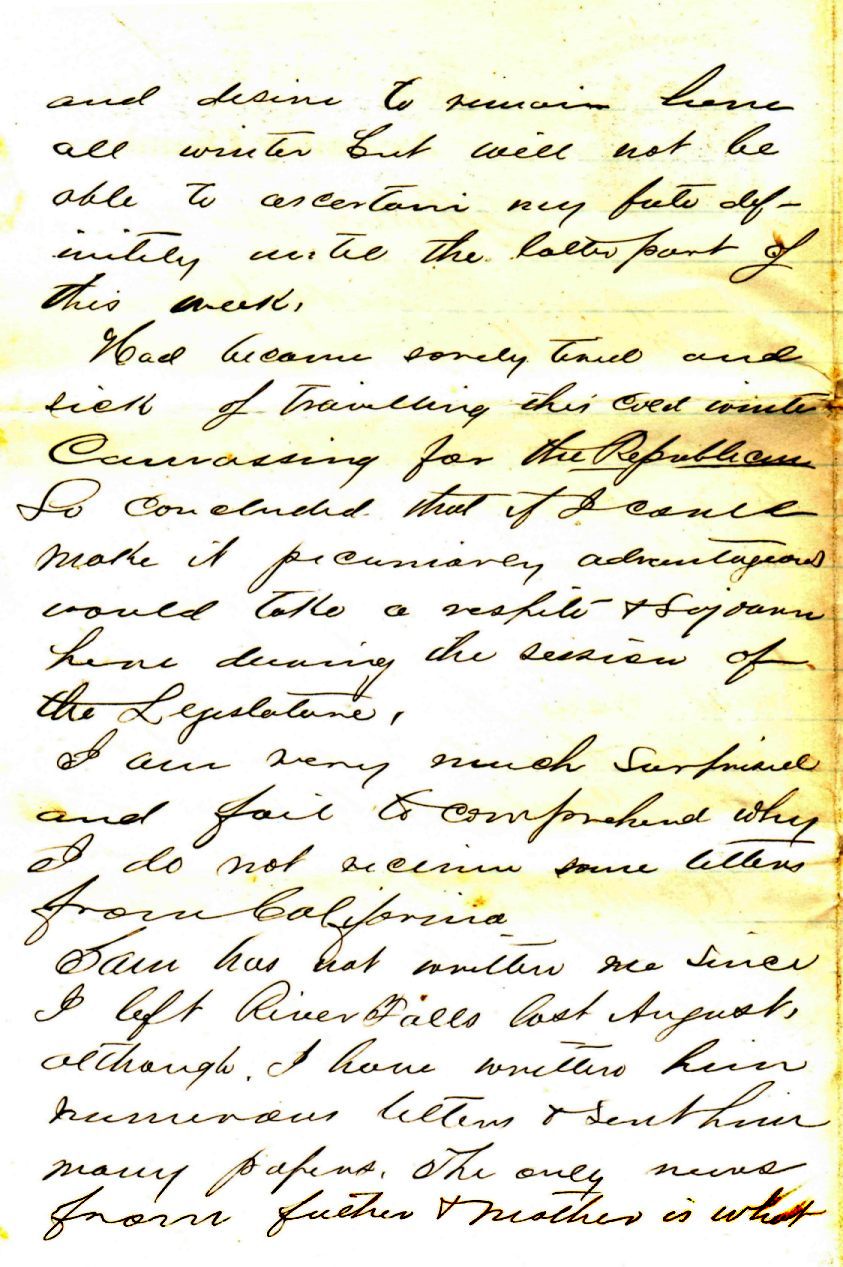 and desire to remain here
all winter but will not be
able to ascertain my fate def-
initely until the latter part of
this week.
Had became sorely tired and
sick of travelling this cold winter
Canvassing for the Republican
So concluded that if I could
make it pecuniarly advantageous
would take a respite & Sojourn
here during the session of
the Legislature.
I am very much surprised
and fail to comprehend why
I do not recieve some letters
from California
Sam has not written me since
I left River Falls last August,
although I have written him
numerous letters & sent him
many papers. The only news
from father & mother is what